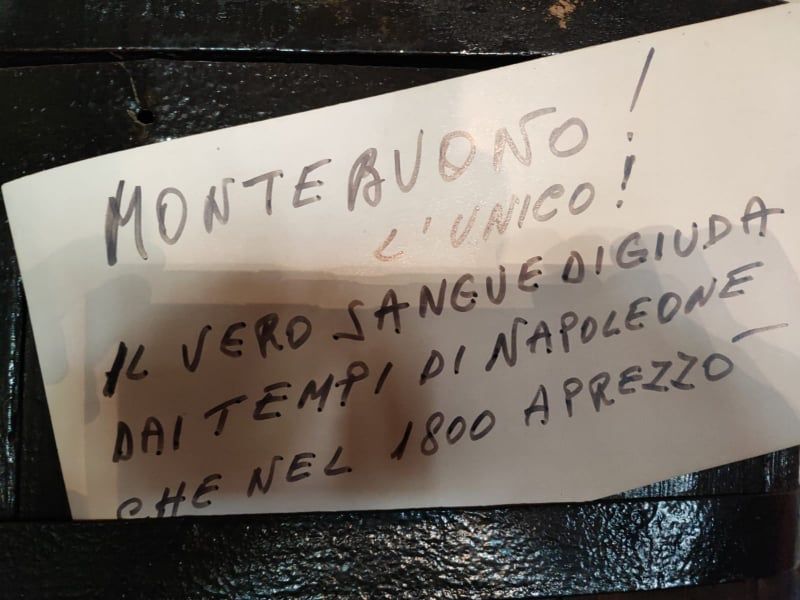 MONTEBUONO!
L'UNICO!
IL VERO SANGUE DI GIUDA
DAI TEMPI DI NAPOLEONE
CHE NEL 1800 APREZZO-